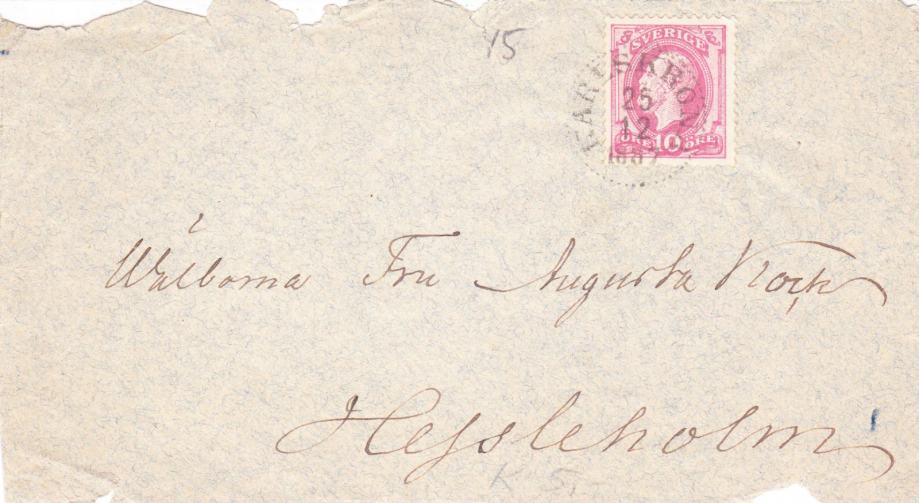 15
SVERIGE
KARLSKRONA
25
12
1887
ÖRE 10 ÖRE
Wälborna Fru Augusta Kock
Hessleholm
K 5,